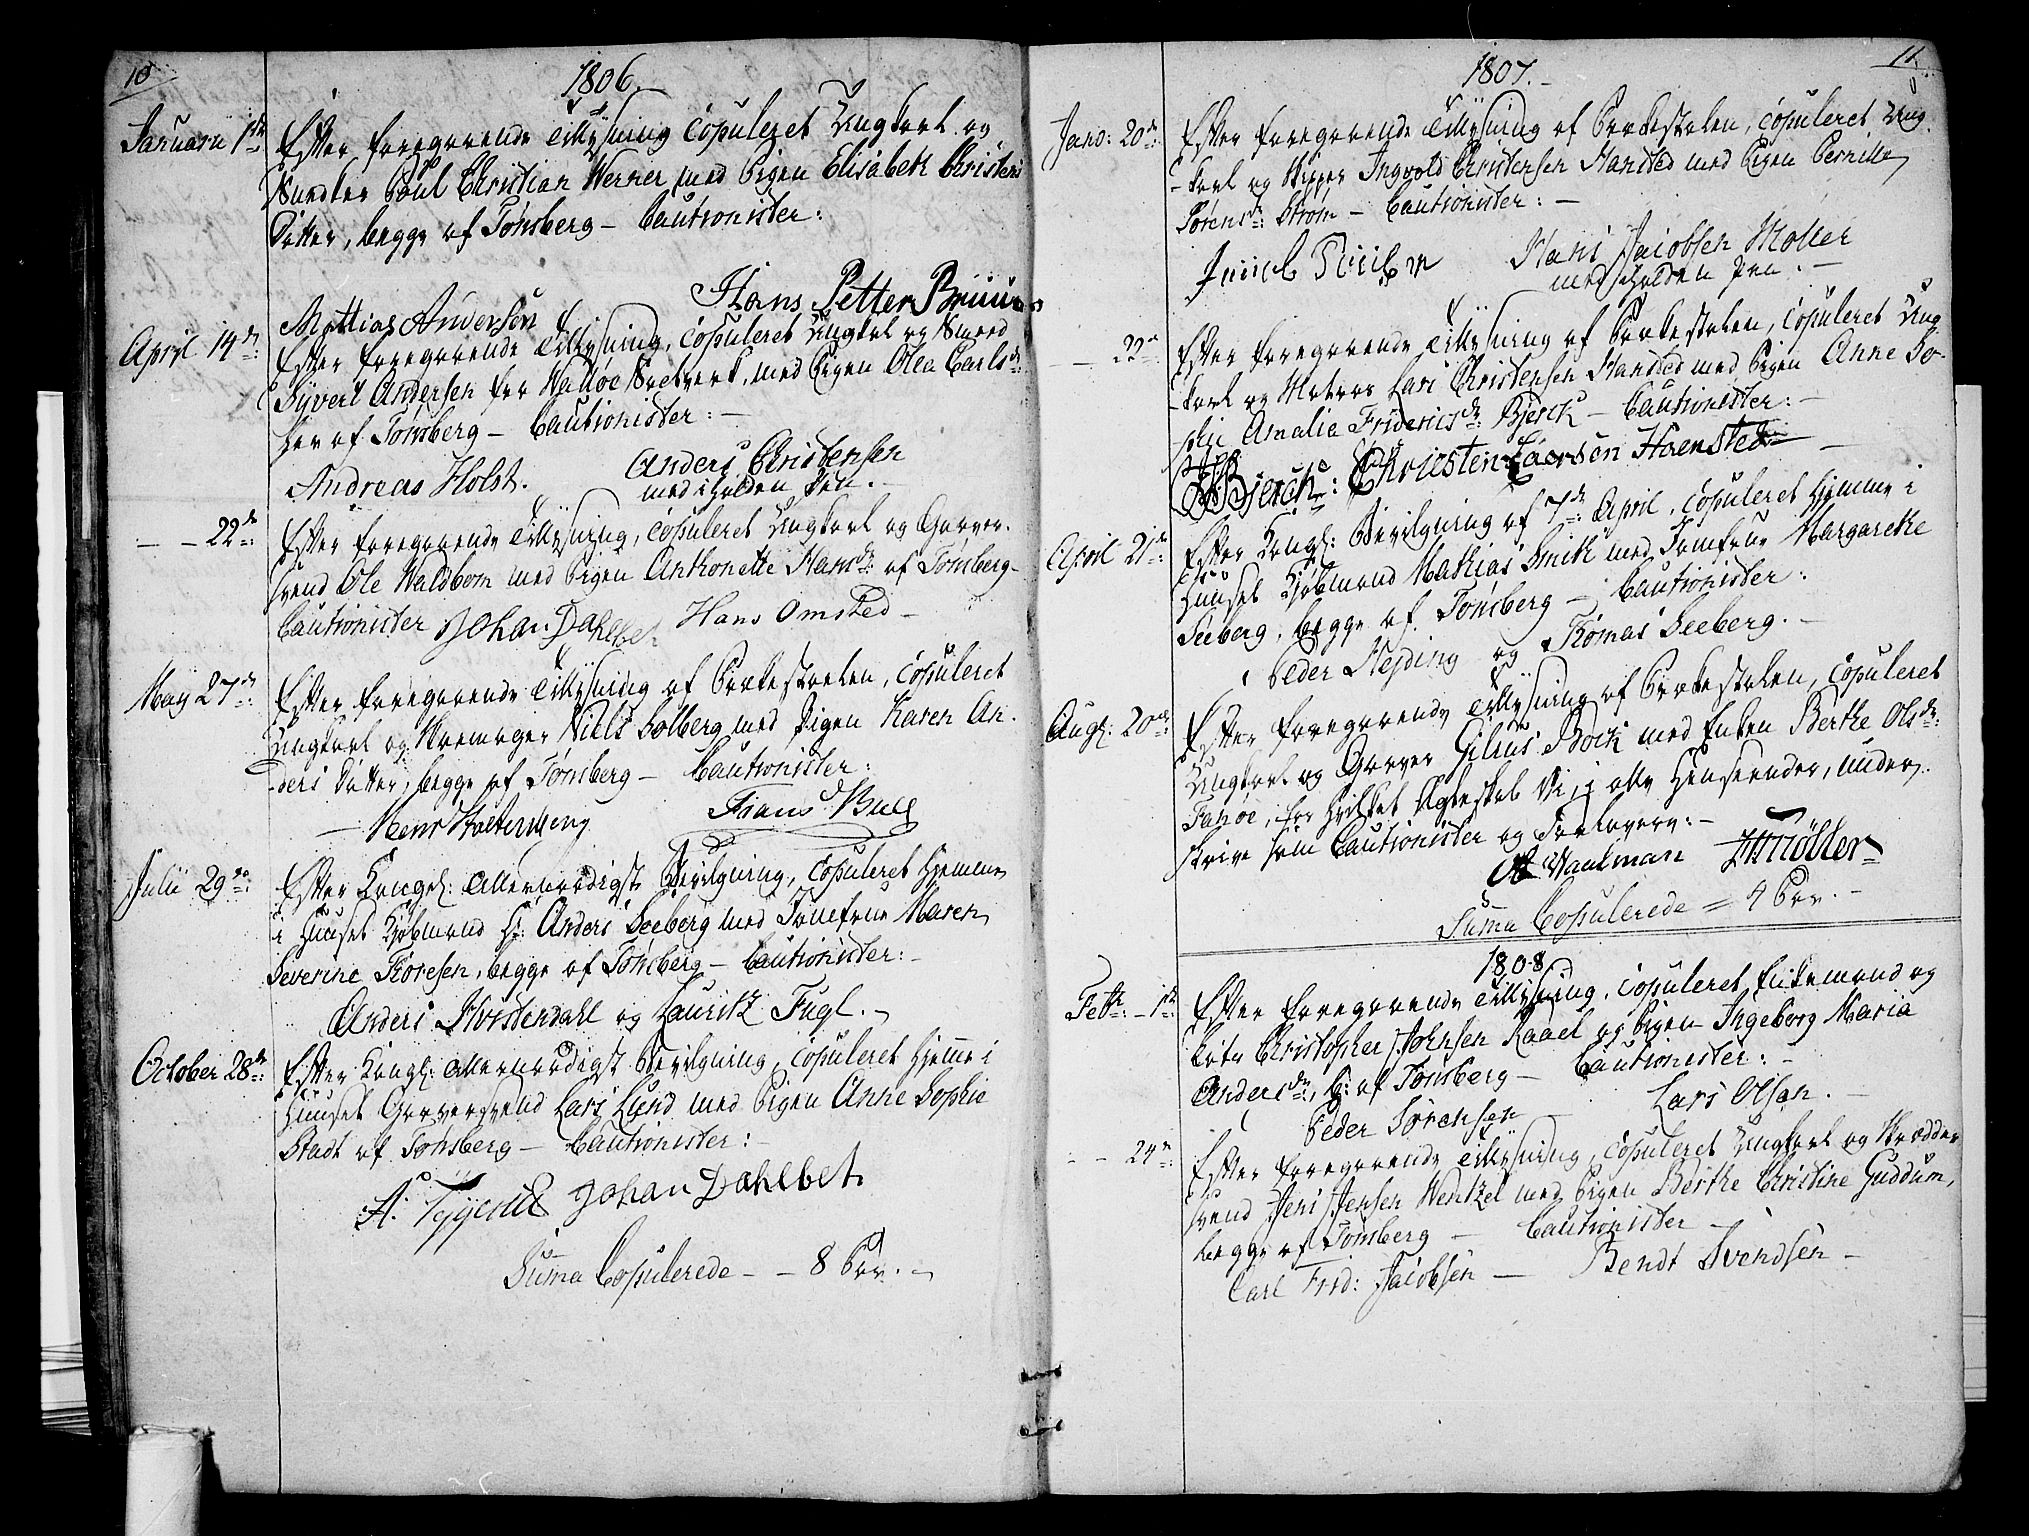 10
1806.
Januarii 1ste
Efter foregaaende Tillysning copuleret Ungkarl og
Snedker Poul Christian Werner med Pigen Elisabeth Christens
Datter, begge af Tønsberg – Cautionister:
Hans Petter Bruun
Mattias Andersen
April 14de:
Efter foregaaende Tillysning, copuleret Ungkarl og Smed
Syvert Andersen fra Walløe Saltverk, med Pigen Olea Carlsdr:
her af Tønsberg – Cautionister: –
Andreas Holst.
Anders Christensen
med iholden Pen. –
– – 22de:
Efter foregaaende Tillysning, copuleret Ungkarl og Garver-
svend Ole Waldbom med Pigen Anthonette Hansdr: af Tønsberg –
Cautionister Johan Dahlbet Hans Omsted –
May 27de:
Efter foregaaende Tillysning af Prækestoelen, copuleret
Ungkarl og Skomager Niels Solberg med Pigen Karen An-
-ders Datter, begge af Tønsberg – Cautionister:
Frans Bull
Julii 29de:
Efter Kongel: allernaadigst Bevilgning, copuleret hjemme
i Huuset Kjøbmand Hr: Anders Seeberg med Jomfrue Maren
Severine Thoresen, begge af Tønsberg – Cautionister: –
Anders Hvistendahl og Lauritz Fugl. –
October 28de:
Efter Kongl: allernaadigst Bevilgning, copuleret hjemme i
Huuset Garversvend Lars Lund med Pigen Anne Sophie
Stadt af Tønsberg – Cautionister: –
Johan Dahlbet
Suma Copulerede – – 8 Par. –
11.
1807. –
Janv: 20de:
Efter foregaaende Tillysning af Prækestolen, copuleret Ung-
-karl og Skipper Ingvold Christensen Hansted med Pigen Pernille
Sørensdr: Strøm – Cautionister: –
Hans Jacobsen Møller
med iholden Pen. –
– 22de
Efter foregaaende Tillysning af Prækestolen, copuleret Ung
-karl og Matros Lars Christensen Hansted med Pigen Anne So-
phie Amalie Fridericsdr: Bjerck – Cautionister: –
Bierck: Christen Laersen Haensted
April 21de:
Efter Kongl: Bevilgning af 7de: April, copuleret hjemme i
Huuset Kjøbmand Mathias Smith med Jomfrue Margarethe
Seeberg, begge af Tønsberg – Cautionister:
Peder Heyding og Thomas Seeberg. –
Augs: 20de:
Efter foregaaende Tillysning af Prækestolen, copuleret
Ungkarl og Garver Gilius Bock med Enken Berthe Olsdr:
Fanøe, for hvilket Ægteskab Vi, i alle Henseender, under-
skrive som Cautionister og Forlovere: –
Waulman Møller
Suma Copulerede = 4 Par. –
1808
Febr: – 1ste
Efter foregaaende Tillysning, copuleret Enkemand og
Christopher Johnsen Raael og Pigen Ingeborg Maria
Andersdr, b: af Tønsberg – Cautionister: –
Peder Sørensen – Lars Olsen. –
– – 24de:
Efter foregaaende Tillysning, copuleret Ungkarl og Skrædder-
svend Jens Jensen Wentzel med Pigen Berthe Christine Guddum,
begge af Tønsberg – Cautionister –
Carl Frid: Jacobsen – Bendt Svendsen –